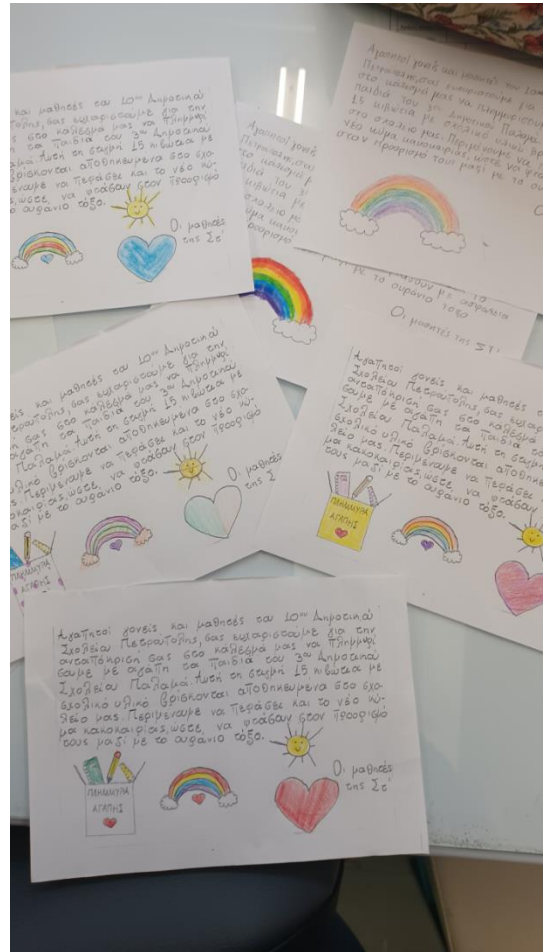 και μαθητές του 10ου Δημοτικού
σας ευχαριστούμε για την
στο κάλεσμά μας να πλημμυρί
του 3ου Δημοτικού
Αυτή τη στιγμή 15 κιβώτια με
βρίσκονται αποθηκευμένα στο σχο
να περάσει και το νέο κύ
ώστε, να φτάσουν στον προορισμό
ουράνιο τόξο.
Οι μαθητές
της Στ'
Αγαπητοί γονείς και μαθητές του 10ου
Πετρούπολης, σας ευχαριστούμε για
στο κάλεσμά μας να πλημμυρίσουμε
παιδιά του 3ου Δημοτικού Παλαμά
15 κιβώτια με σχολικό υλικό
στο σχολείο μας. Περιμένουμε να
νέο κύμα κακοκαιρίας, ώστε να
στον προορισμό τους μαζί με το
Αγαπητοί γονείς
Πετρούπολης, σας
στο κάλεσμά
παιδιά του 3
κιβώτια με
σχολείο
κύμα
προορισμό
με ασφάλεια
με το ουράνιο τόξο
Οι μαθητές της Στ'
και μαθητές του 10ου Δημοτικού
Πετρούπολης, σας ευχαριστούμε για την
σας στο κάλεσμά μας να πλημμυρί
αγάπη τα παιδιά του 3ου Δημοτικού
Παλαμά. Αυτή τη στιγμή 15 κιβώτια με
υλικό βρίσκονται αποθηκευμένα στο σχο
μας. Περιμένουμε να περάσει και το νέο κύ
ώστε, να φτάσουν στον προορισμό
μαζί με το ουράνιο τόξο.
Οι μαθητές
της Σ
ΠΛΗΜΜΥΡΑ
ΑΓΑΠΗΣ
Αγαπητοί γονείς και μαθητές
Σχολείου Πετρούπολης, σας
ανταπόκριση σας στο κάλεσμά
σουμε με αγάπη τα παιδιά
Σχολείου Παλαμά. Αυτή τη στιγμή
σχολικό υλικό βρίσκονται αποθηκευ
λείο μας. Περιμένουμε να περάσει
μα κακοκαιρίας, ώστε, να φτάσουν
τους μαζί με το ουράνιο τόξο.
ΠΛΗΜΜΥΡΑ
ΑΓΑΠΗΣ
Αγαπητοί γονείς και μαθητές του 10ου Δημοτικού
Σχολείου Πετρούπολης, σας ευχαριστούμε για την
ανταπόκριση σας στο κάλεσμά μας να πλημμυρί
σουμε με αγάπη τα παιδιά του 3ου Δημοτικού
Σχολείου Παλαμά. Αυτή τη στιγμή 15 κιβώτια με
σχολικό υλικό βρίσκονται αποθηκευμένα στο σχο
λείο μας. Περιμένουμε να περάσει και το νέο κύ-
μα κακοκαιρίας, ώστε, να φτάσουν στον προορισμό
τους μαζί με το ουράνιο τόξο.
ΠΛΗΜΜΥΡΑ
ΑΓΑΠΗΣ
Οι μαθητές
της Στ'